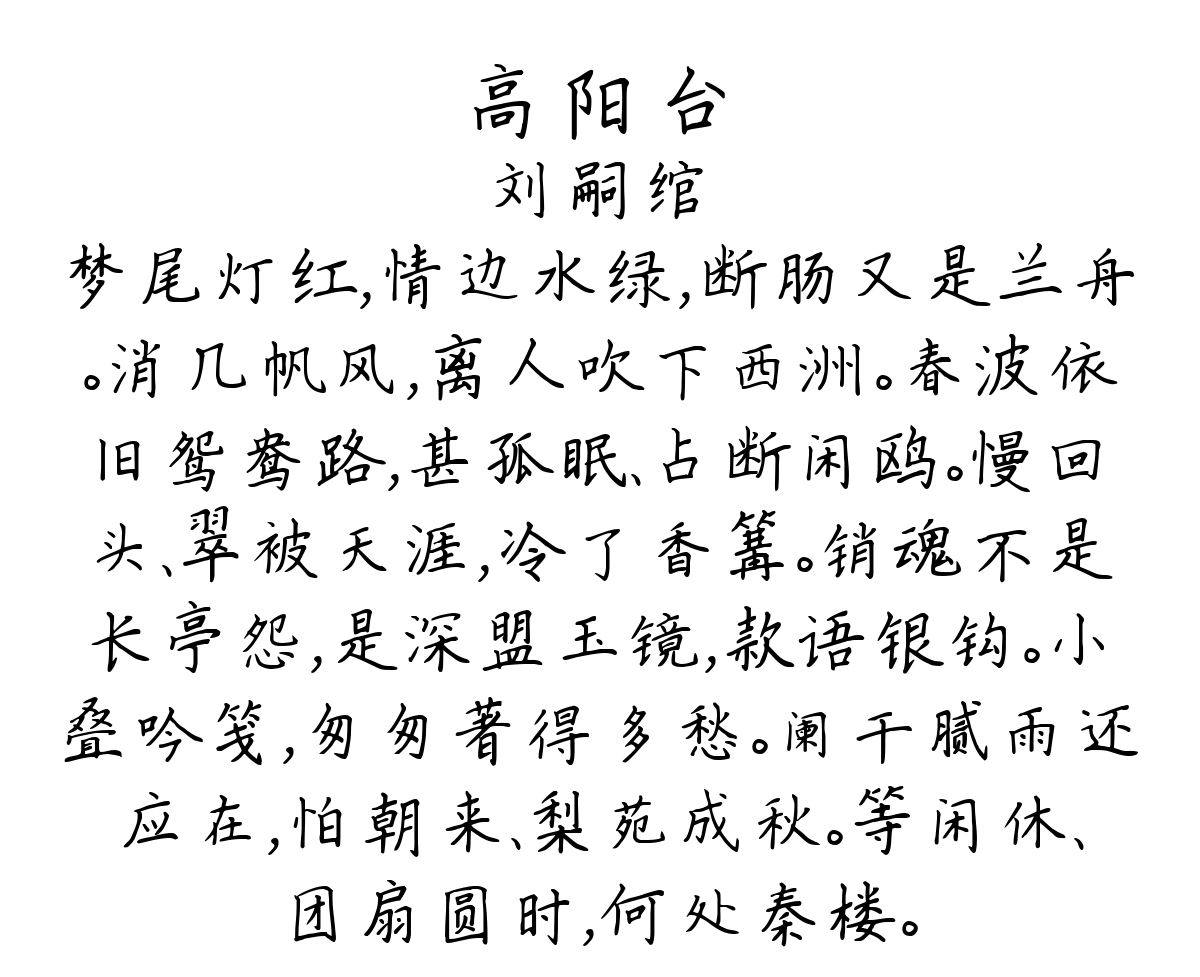 高阳台
刘嗣绾
梦尾灯红,情边水绿,断肠又是兰舟
。消几帆风,离人吹下西洲。春波依
旧鸳鸯路,甚孤眠、占断闲鸥。慢回
头、翠被天涯,冷了香篝。销魂不是
长亭怨,是深盟玉镜,款语银钩。小
叠吟笺,匆匆著得多愁。阑干腻雨还
应在,怕朝来、梨苑成秋。等闲休、
团扇圆时,何处秦楼。